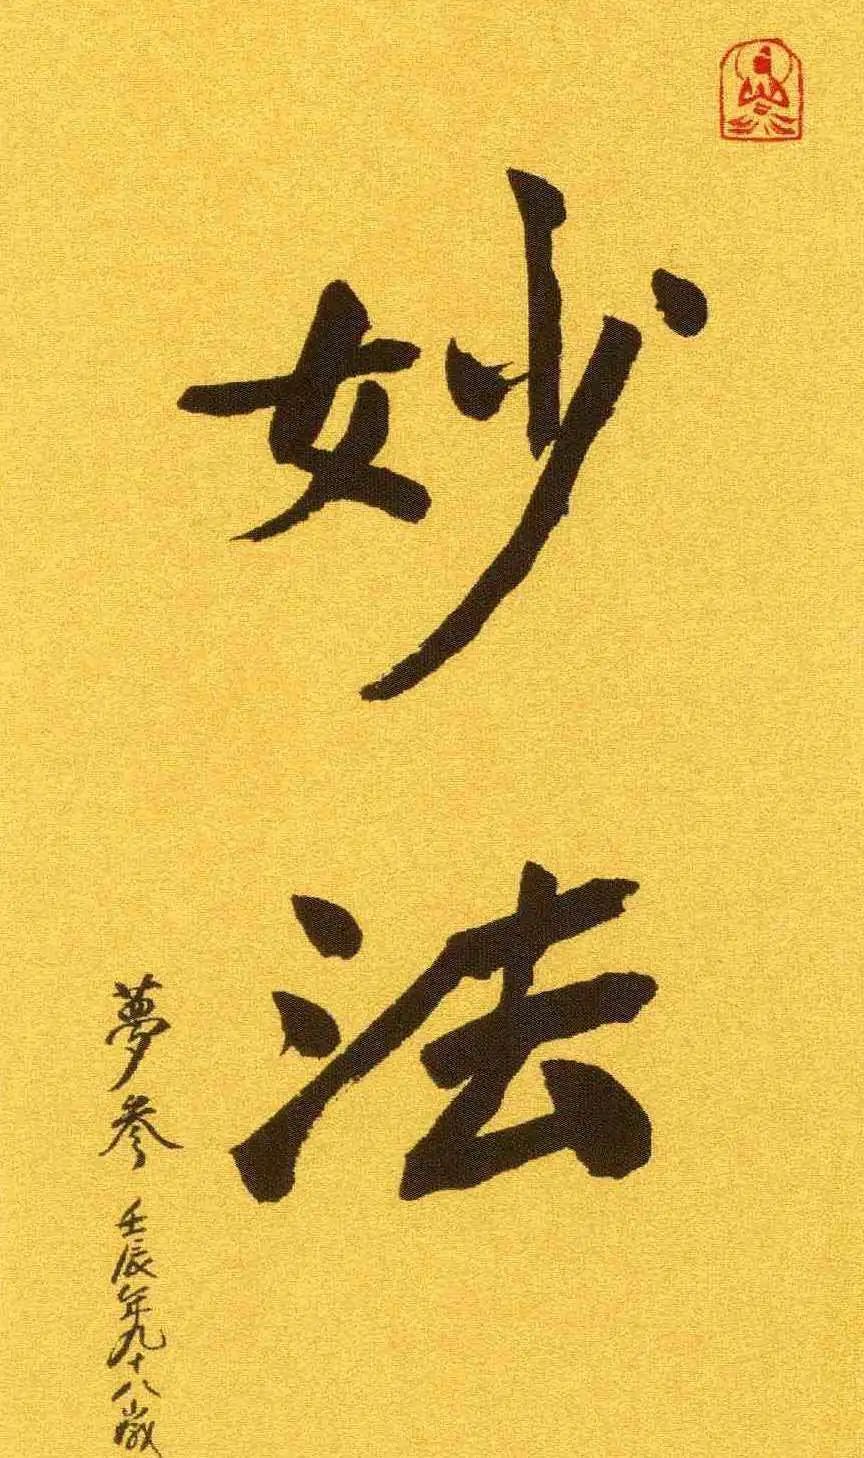 妙法
夢參 壬辰年九十八歲